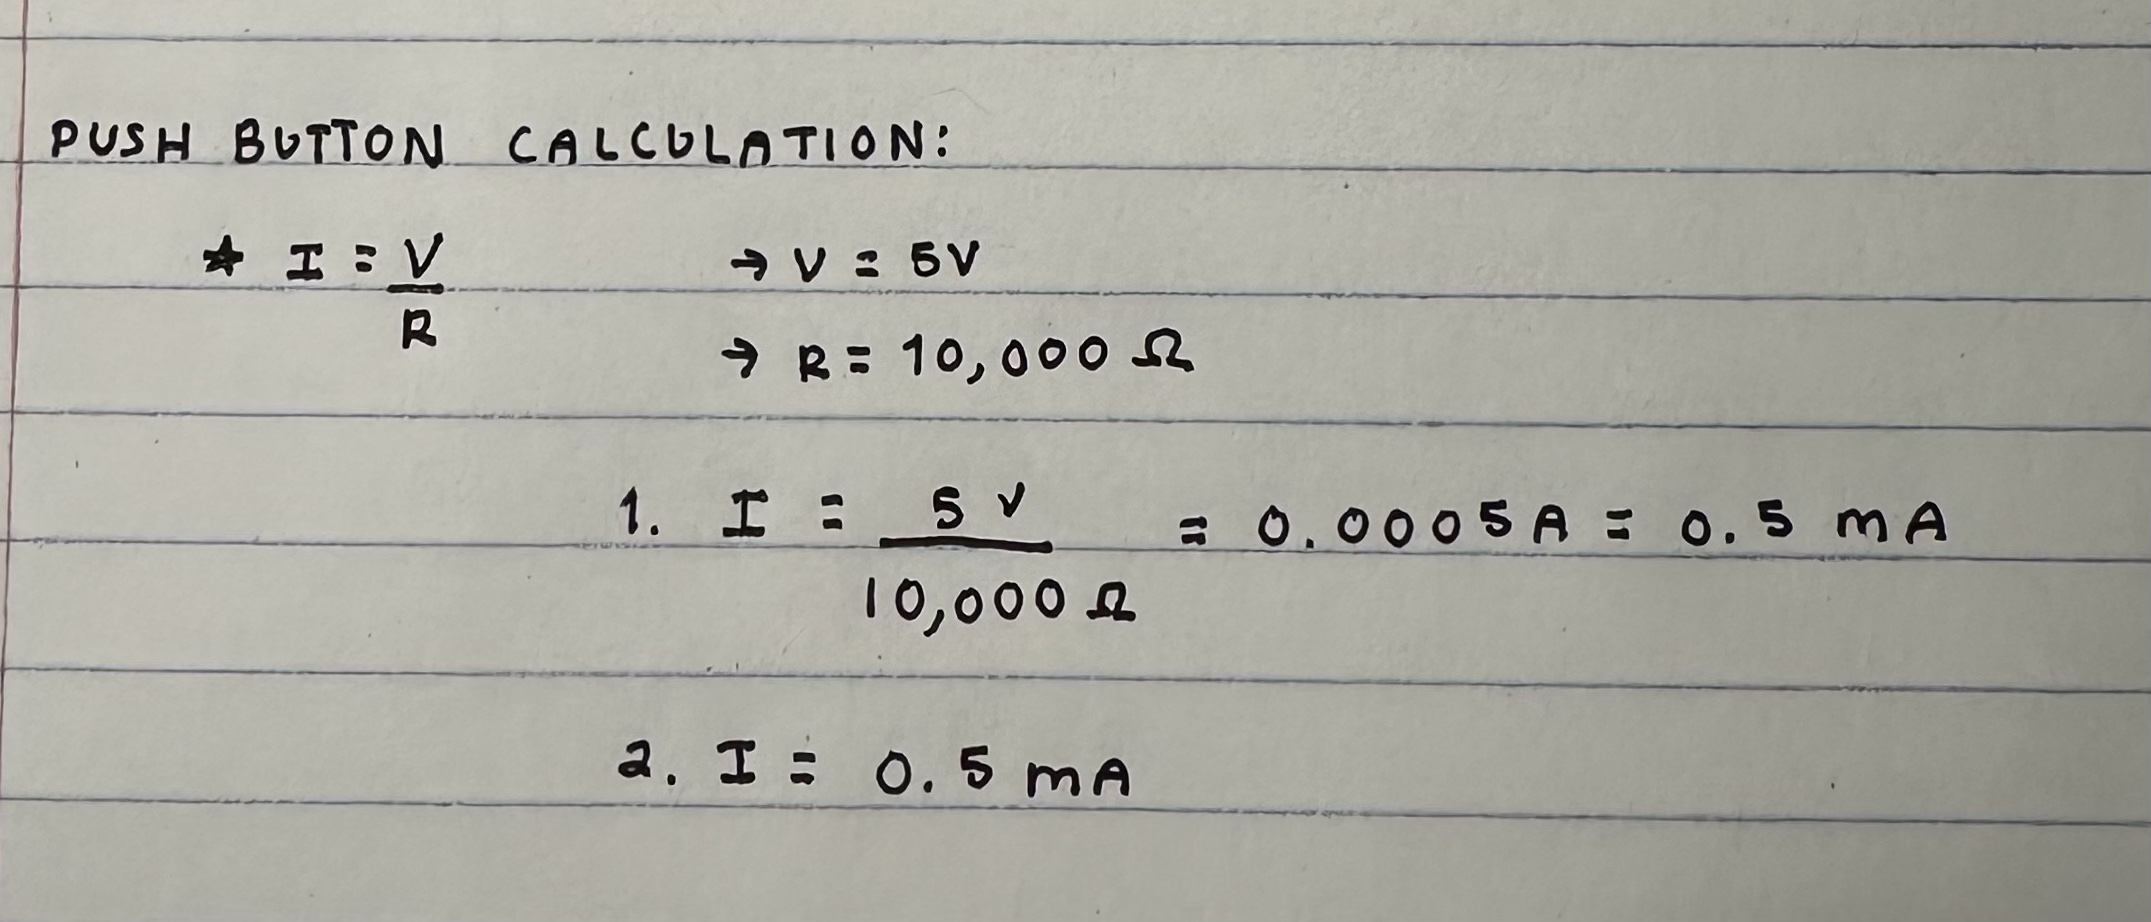 PUSH BUTTON CALCULATION:
★ I = V/R → V = 5V
→ R = 10,000 Ω
1. I = 5 V / 10,000 Ω = 0.0005A = 0.5 mA
2. I = 0.5 mA